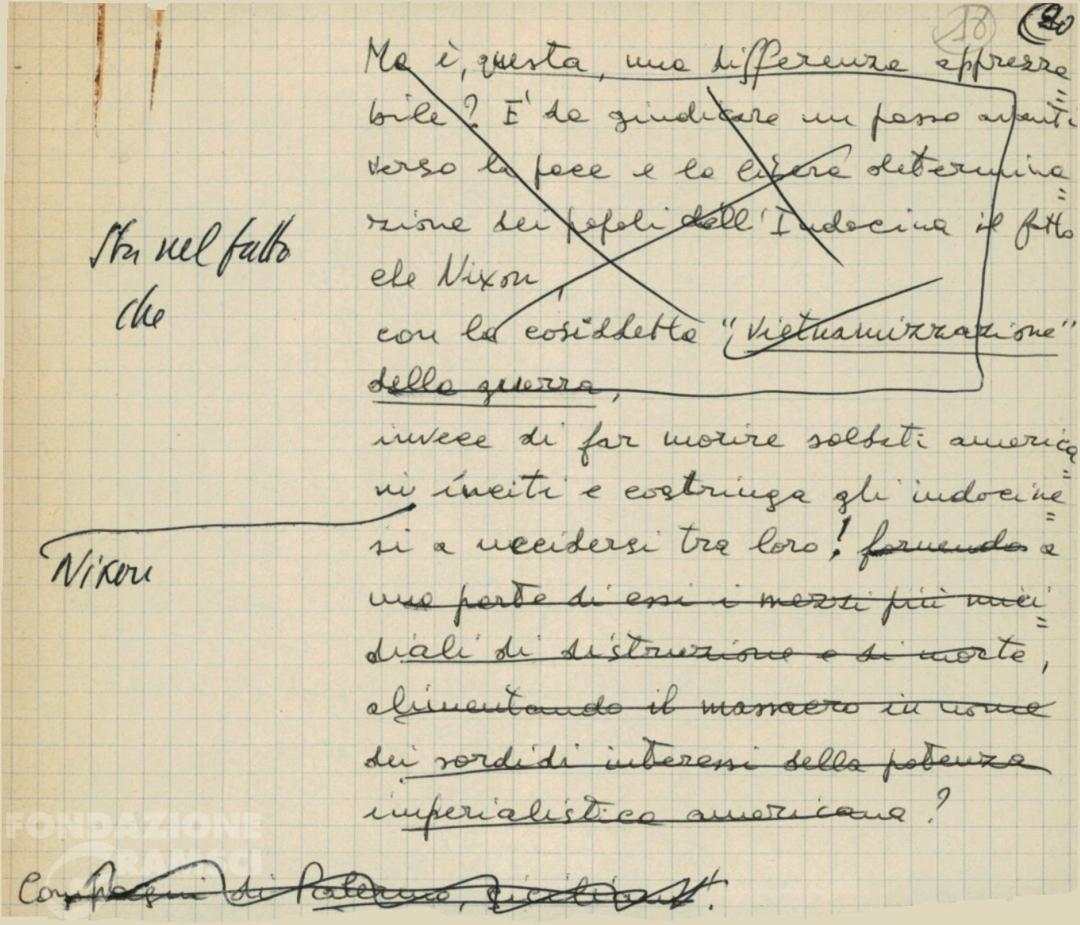 18 20
Ma è, questa, una differenza apprezza=
bile? E' da giudicare un passo avanti
verso la pace e la libera determina=
zione dei popoli dell'Indocina il fatto
Sta nel fatto
che
che Nixon,
con la cosiddetta "vietnamizzazione"
della guerra,
invece di far morire soldati america=
ni inciti e costringa gli indocine=
si a uccidersi tra loro! fornendo a
Nixon
una parte di essi i mezzi più mici=
diali di distruzione e di morte,
alimentando il massacro in nome
dei sordidi interessi della potenza
imperialistica americana?
FONDAZIONE
GRAMSCI
Compagni di Palermo, siciliani!